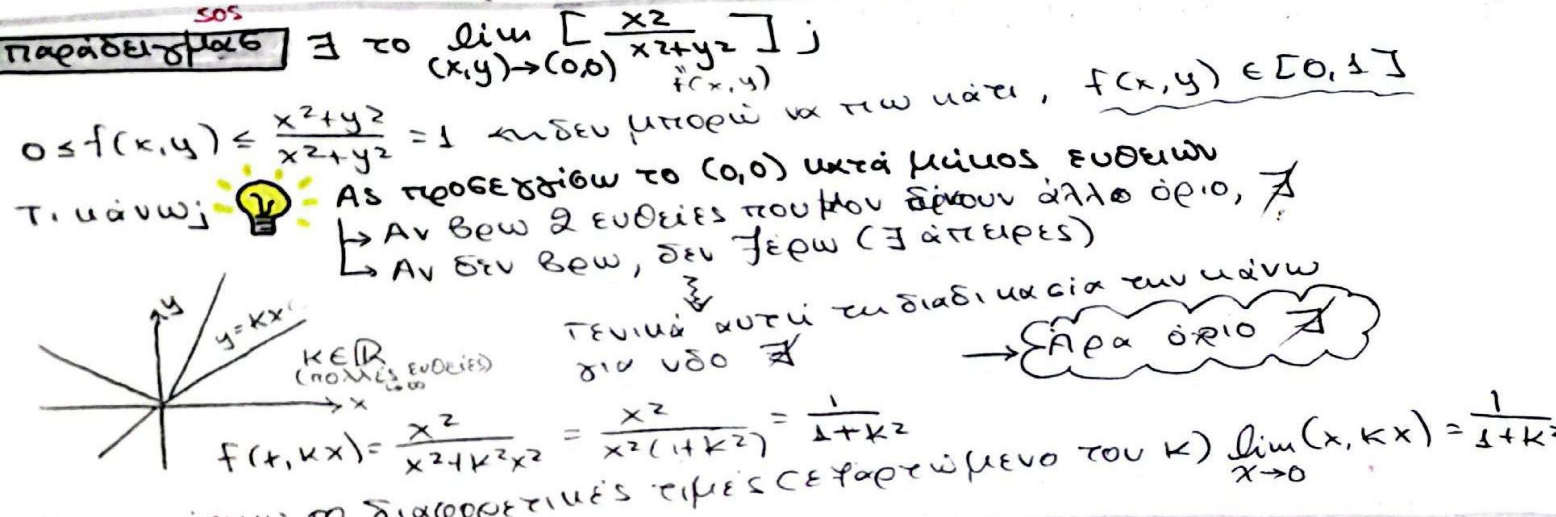 SOS
Παράδειγμα 6 ∃ το lim (x,y)→(0,0) [x2/(x2+y2)] ;
f(x,y)
0≤f(x,y)≤ (x²+y2)/(x²+y2) =1 δεν μπορώ να πω κάτι, f(x,y) ∈ [0,1]
Τι κάνω; Ας προσεγγίσω το (0,0) κατά μήκος ευθειών
↳ Αν βρω 2 ευθείες που μου δίνουν άλλο όριο, ∄
↳ Αν δεν βρω, δεν ξέρω (∃ άπειρες)
Γενικά αυτή τη διαδικασία την κάνω
για νδο ∄
→ Άρα όριο ∄
y
y=kx
k∈ℝ
(πολλές ευθείες)
∞
x
f(x,kx)= x²/(x²+k²x²) = x²/(x²(1+k²)) = 1/(1+k²)
διαφορετικές τιμές (εξαρτώμενο του k) lim x→0 (x,kx) = 1/(1+k²